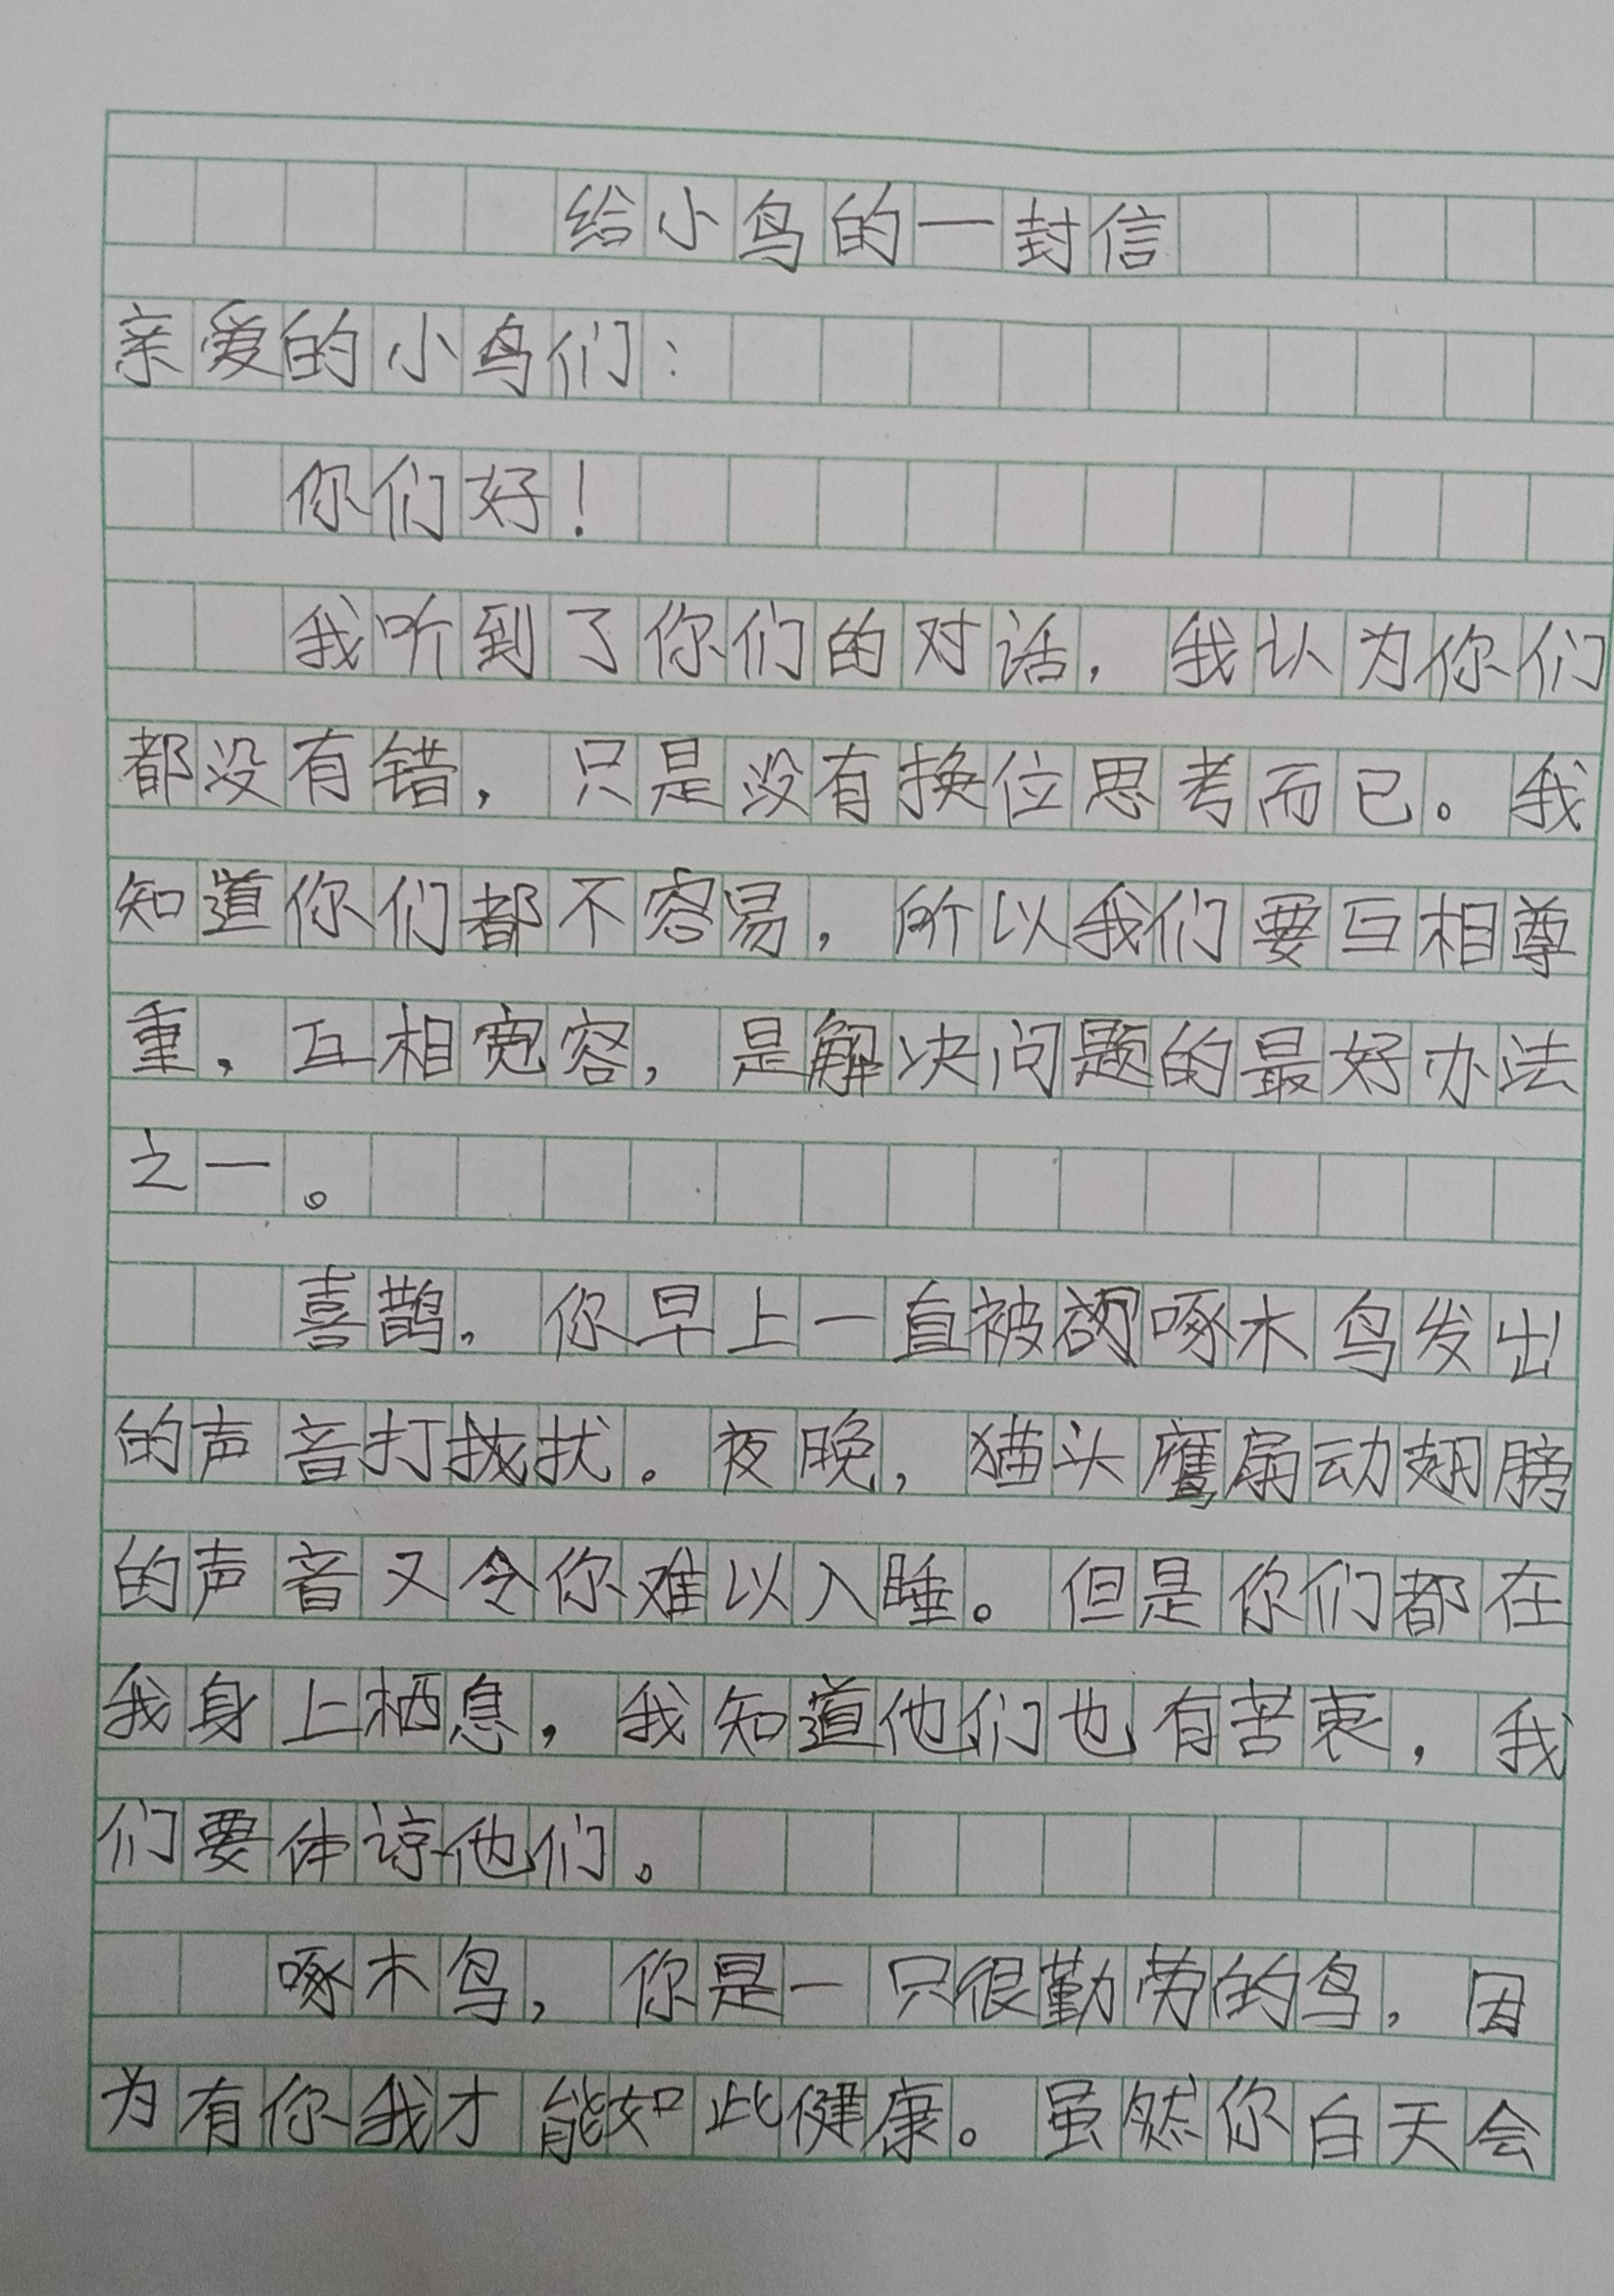 给小鸟的一封信
亲爱的小鸟们：
你们好！
我听到了你们的对话，我认为你们
都没有错，只是没有换位思考而已。我
知道你们都不容易，所以我们要互相尊
重，互相宽容，是解决问题的最好办法
之一。
喜鹊，你早上一直被啄木鸟发出
的声音打扰。夜晚，猫头鹰扇动翅膀
的声音又令你难以入睡。但是你们都在
我身上栖息，我知道他们也有苦衷，我
们要体谅他们。
啄木鸟，你是一只很勤劳的鸟，因
为有你我才能如此健康。虽然你白天会